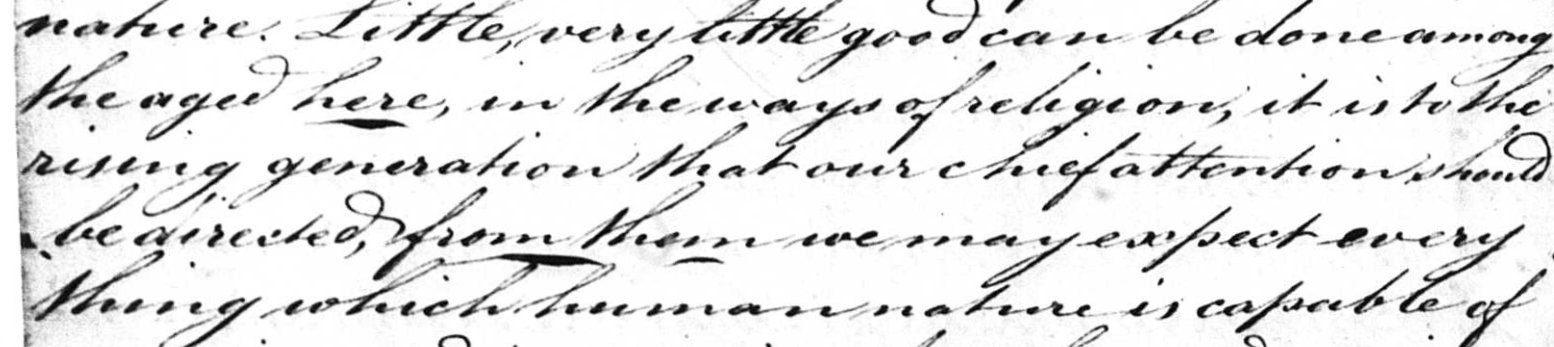 nature. Little, very little good can be done among
the aged here, in the ways of religion, it is to the
rising generation that our chief attention should
be directed, from them we may expect every
thing which human nature is capable of